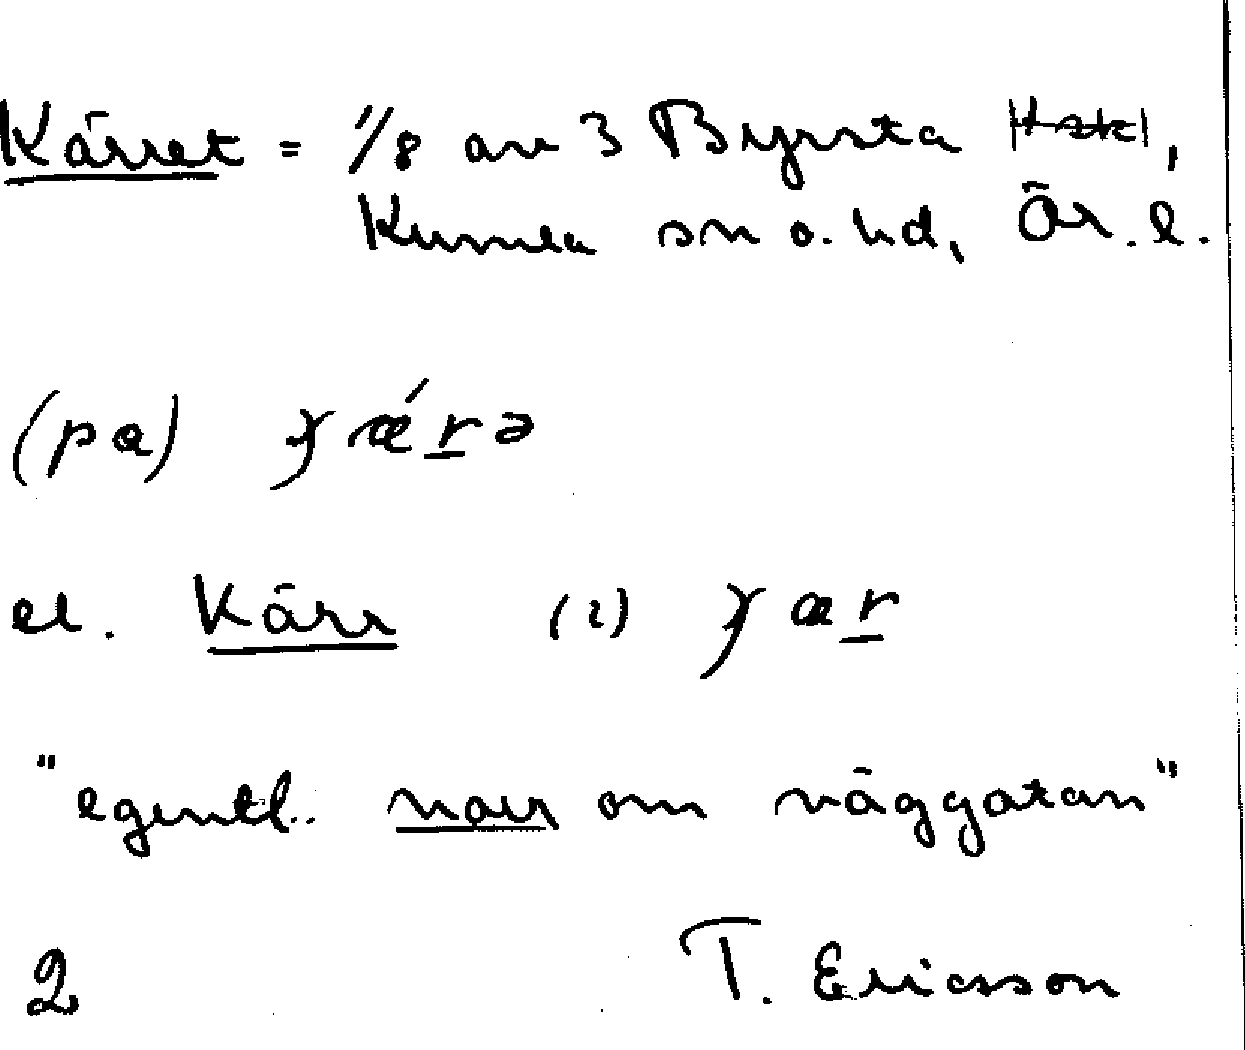 Kärret = 1/8 av 3 Byrsta Hskl,
Kumla sn o. hd, Ör. l.
(pa) ɣǽrə
el. Kärr (i) ɣær
"egentl. norr om väggatan"
2 T. Ericsson